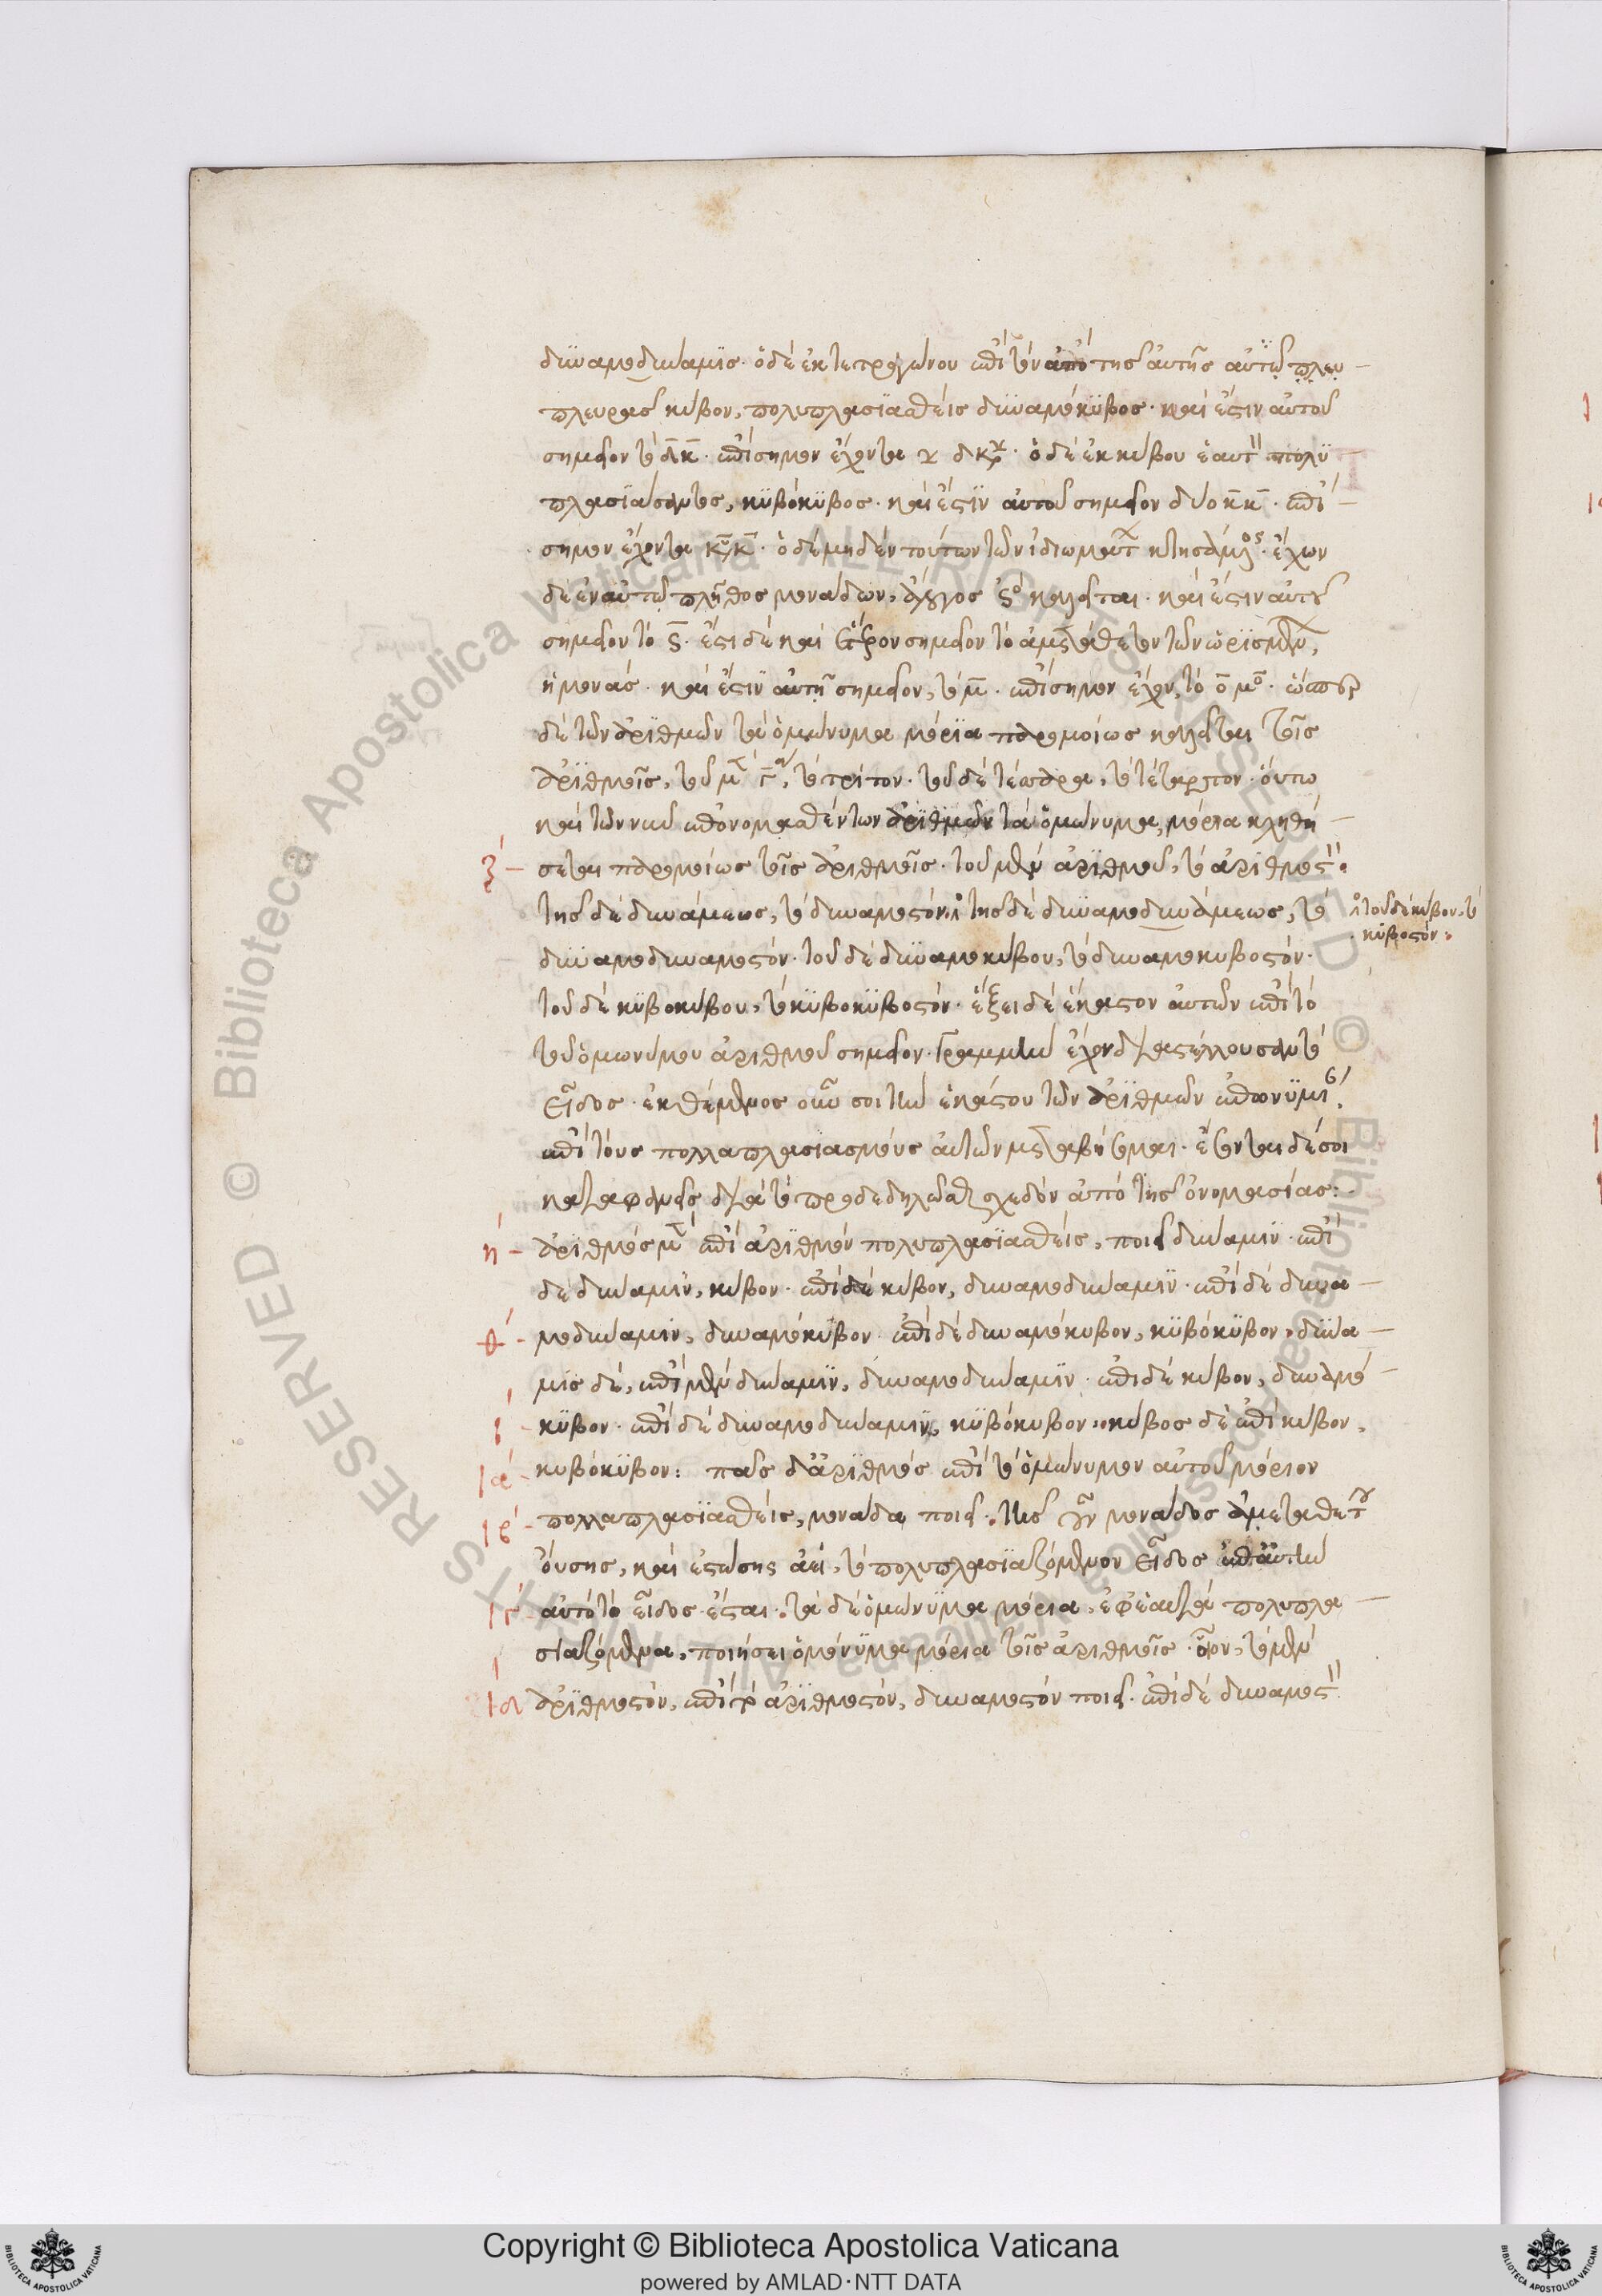 δυναμοδύναμις. ὁ δὲ ἐκ τετραγώνου ἐπὶ τὸν ἀπὸ τῆς αὐτῆς αὐτῷ πλευ
πλευρᾶς κύβον, πολυπλασιασθεὶς δυναμόκυβος. καὶ ἔστιν αὐτοῦ
σημεῖον τὸ δ̅κ̅. ἐπίσημον ἔχοντα υ δκυ. ὁ δὲ ἐκ κύβου ἑαυτὸν πολυ
πλασιάσαντος, κυβόκυβος. καὶ ἔστιν αὐτοῦ σημεῖον δύο κ̅κ̅. ἐπί
σημον ἔχοντα κυκ̅. ὁ δὲ μηδὲν τούτων τῶν ἰδιωμάτων κτησάμενος. ἔχων
δὲ ἐν αὑτῷ πλῆθος μονάδων, ἄλογος ςὸ καλεῖται. καὶ ἔστιν αὐτοῦ
σημεῖον τὸ ς̅. ἔστι δὲ καὶ ἕτερον σημεῖον τὸ ἀμετάθετον τῶν ὡρισμένων,
ἡ μονάς. καὶ ἔστιν αὐτῆς σημεῖον, τὸ μ̅. ἐπίσημον ἔχον, τὸ ο̅ μο. ὥσπερ
δὲ τῶν ἀριθμῶν τὰ ὁμώνυμα μόρια παρομοίως καλεῖται τοῖς
ἀριθμοῖς, τοῦ μὲν γ̅, τὸ τρίτον. τοῦ δὲ τέσσαρα, τὸ τέταρτον. οὕτω
καὶ τῶν νῦν ἐπονομασθέντων ἀριθμῶν τὰ ὁμώνυμα, μόρια κληθή
ζ σεται παρομοίως τοῖς ἀριθμοῖς. τοῦ μὲν ἀριθμοῦ, τὸ ἀριθμοστόν.
τῆς δὲ δυνάμεως, τὸ δυναμοστόν. τῆς δὲ δυναμοδυνάμεως, τὸ
τοῦ δὲ κύβου, τὸ
κυβοστόν:
δυναμοδυναμοστόν. τοῦ δὲ δυναμοκύβου, τὸ δυναμοκυβοστόν.
τοῦ δὲ κυβοκύβου, τὸ κυβοκυβοστόν. ἕξει δὲ ἕκαστον αὐτῶν ἐπὶ τὸ
τοῦ ὁμωνύμου ἀριθμοῦ σημεῖον. γραμμὴν ἔχον διαστέλλουσαν τὸ
εἶδος. ἐκθέμενος οὖν σοι τὴν ἑκάστου τῶν ἀριθμῶν ἐπωνυμί
ἐπὶ τοὺς πολλαπλασιασμοὺς αὐτῶν μεταβήσομαι. ἔσονται δέ σοι
καταφανεῖς διὰ τὸ προδεδηλῶσθαι σχεδὸν ἀπὸ τῆς ὀνομασίας:.
η ἀριθμὸς μὲν ἐπὶ ἀριθμὸν πολυπλασιασθεὶς, ποιεῖ δύναμιν. ἐπὶ
δὲ δύναμιν, κύβον. ἐπὶ δὲ κύβον, δυναμοδύναμιν. ἐπὶ δὲ δυνα
θ μοδύναμιν, δυναμόκυβον. ἐπὶ δὲ δυναμόκυβον, κυβόκυβον, δύνα
μις δὲ, ἐπὶ μὲν δύναμιν, δυναμοδύναμιν. ἐπὶ δὲ κύβον, δυναμό
ι κυβον. ἐπὶ δὲ δυναμοδύναμιν, κυβόκυβον. κύβος δὲ ἐπὶ κύβον,
ια κυβόκυβον: πᾶς δ' ἀριθμὸς ἐπὶ τὸ ὁμώνυμον αὐτοῦ μόριον
ιβ πολλαπλασιασθεὶς, μονάδα ποιεῖ. τῆς οὖν μονάδος ἀμεταθέτου
οὔσης, καὶ ἑστώσης ἀεί, τὸ πολυπλασιαζόμενον εἶδος ἐπ' αὐτὴν
ιγ αὐτὸ τὸ εἶδος ἔσται. τὰ δὲ ὁμώνυμα μόρια, ἐφ' ἑαυτὰ πολυπλα
σιαζόμενα, ποιήσει ὁμώνυμα μόρια τοῖς ἀριθμοῖς. οἷον, τὸ μὲν
ιδ ἀριθμοστόν, ἐπὶ τὸ ἀριθμοστόν, δυναμοστὸν ποιεῖ. ἐπὶ δὲ δυναμοστόν
Copyright © Biblioteca Apostolica Vaticana
powered by AMLAD·NTT DATA